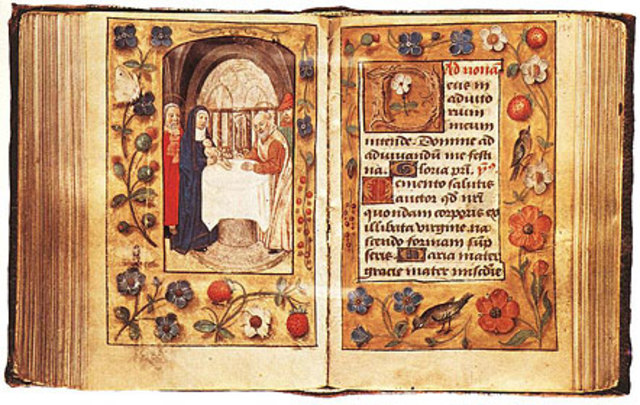 Ad nonā
Deus in
adiuto
rium
meum
intende. Domine ad
adiuuandū me festi
na. Gloria pr̄i. v̄
Memento salutis
auctor qd̄ nr̄i
quondam corporis ex
illibata virgine na
scendo formam sūp
seris. Maria mater
gracie mater mīcdie